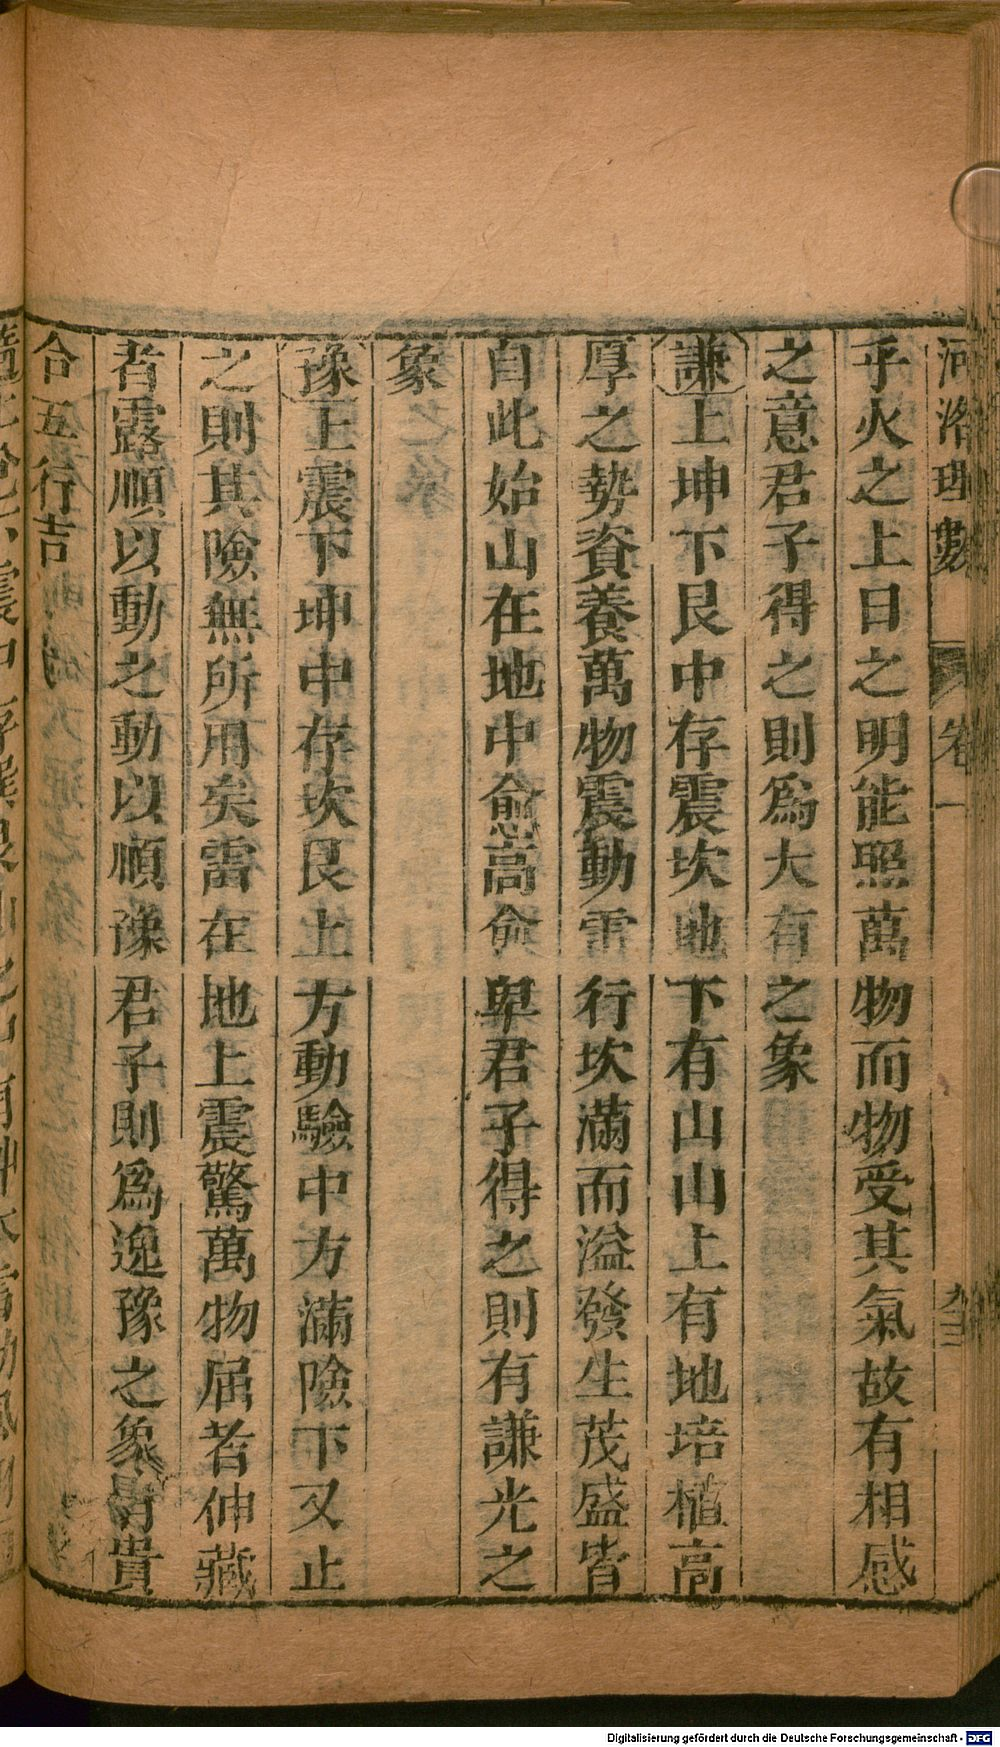 河洛理數 卷一 九三
乎火之上日之明能照萬物而物受其氣故有相感
之意君子得之則爲大有之象
謙上坤下艮中存震坎地下有山山上有地培植高
厚之勢資養萬物震動雷行坎滿而溢發生茂盛皆
自此始山在地中愈高愈卑君子得之則有謙光之
象
豫上震下坤中存坎艮上方動驗中方滿險下又止
之則其險無所用矣雷在地上震驚萬物屈者伸藏
者露順以動之動以順豫君子則爲逸豫之象貴
合五行吉
Digitalisierung gefördert durch die Deutsche Forschungsgemeinschaft - DFG